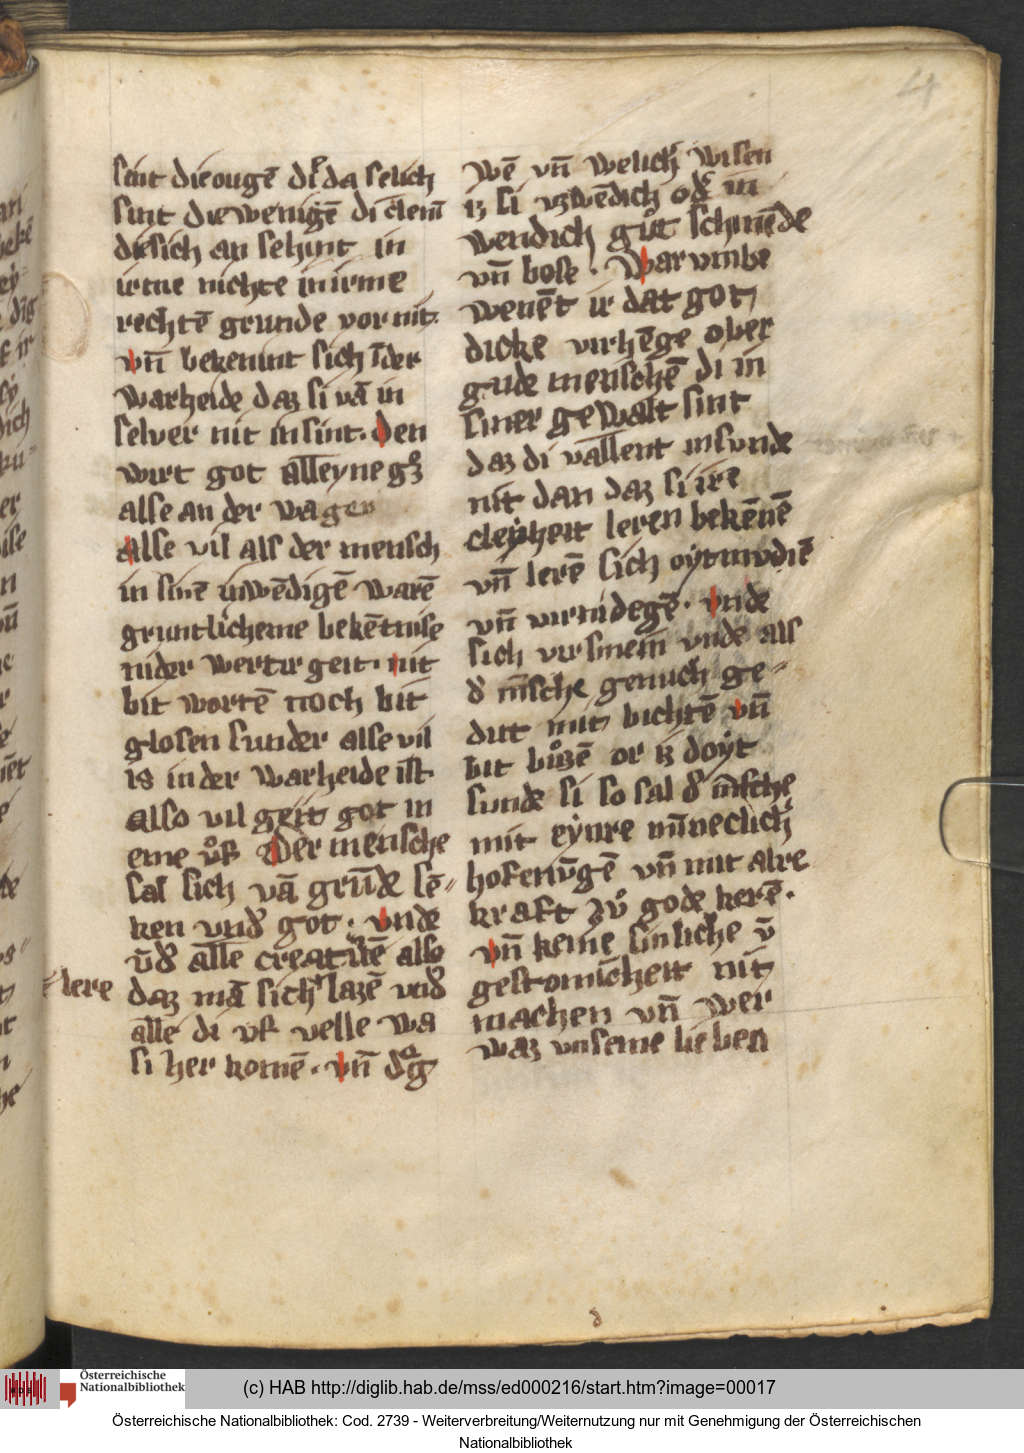 4
sint die ougē dͥ da selich
sint die wenigē di clein̄
di sich an sehint in
irme nichte in irme
rechtē grunde vor nit.
vn̄ bekennint sich ī der
warheide daz si vā in
selver nit in sint. Den
wirt got alleyne gͦz
alse an der vager
Alse vil als der mensch
in sinē inwēdigē warē
gruntlicheme bekētnise
nider wertir geit. nit
bit wortē noch bit
glosen sunder alse vil
is in der warheide ist
also vil geit got in
eme vͦf Der mensche
sal sich vā grūde sē=
ken vnd̓ got. vnde
v̄d̓ alle creatu̓rē also
lere
daz mā sich lazē vnd̓
alle di vf velle wa
si her komē. vn̄ dͣ g
wē vn̄ welich̓ wisen
iz si vzwēdich od̓ in
wendich guͦt schinēde
vn̄ bose. Warvmbe
wenēt ir dat got
dicke virhēge over
gude menschē di in
siner gewalt sint
daz di vallent in svnde
nit dan daz si ire
cleẏheit leren bekēnē
vn̄ lerē sich oẏtmvdiē
vn̄ virnidegē. vnde
sich virsinem̄ vnde als
d̓ m̄sche genuch ge=
dut mit bichtē vn̄
bit buͦzē or iz doẏt
sunde si so sal d̓ m̄sche
mit eẏnre mīneclich̓
hofenv̄gē vn̄ mit alre
kraft zvͦ gode kerē.
vn̄ keine sinliche v̄
gestomicheit nit
machen vn̄ wer
waz vnseme lieben
(c) HAB http://diglib.hab.de/mss/ed000216/start.htm?image=00017
Österreichische
Nationalbibliothek
Österreichische Nationalbibliothek: Cod. 2739 - Weiterverbreitung/Weiternutzung nur mit Genehmigung der Österreichischen
Nationalbibliothek